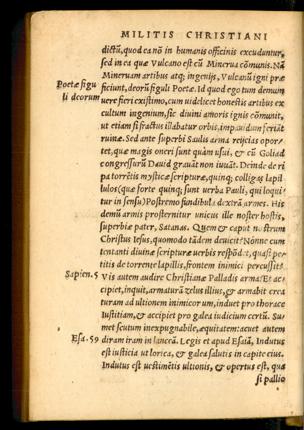 MILITIS CHRISTIANI
dictū, quod ea nō in humanis officinis excuduntur,
sed in ea quæ Vulcano est cū Minerua cōmunis. Nā
Mineruam artibus atq; ingenijs, Vulcanū igni præ
Poetæ figu
ficiunt, deorū figuli Poetæ. Id quod ego tum demum
li deorum
uere fieri existimo, cum uidelicet honestis artibus ex
cultum ingenium, sic diuini amoris ignis cōmunit,
ut etiam si fractus illabatur orbis, impauidum feriāt
ruinæ. Sed ante superbi Saulis arma reijcias opor-
tet, quæ magis oneri sunt quàm usui, & cū Goliad
congressurū Dauid grauāt non iuuāt. Deinde de ri
pa torrētis mysticæ scripturæ, quinq; colligas lapil
los (quæ forte quinq; sunt uerba Pauli, qui loqui
tur in sensu) Postremo fundibulū dextrā armes. His
demū armis prosternitur unicus ille noster hostis,
superbiæ pater, Satanas. Quem & caput nostrum
Christus Iesus, quo modo tādem deuicit? Nónne cum
tentanti diuinæ scripturæ uerbis respōdit, quasi pe-
titis de torrente lapillis, frontem inimici percussit?
Sapien. 5
Vis autem audire Christianæ Palladis arma? Et ac-
cipiet, inquit, armaturā zelus illius, & armabit crea
turam ad ultionem inimicorum, induet pro thorace
iustitiam, & accipiet pro galea iudicium certū. Su
met scutum inexpugnabile, æquitatem: acuet autem
Esa. 59
diram iram in lanceā. Legis et apud Esaiā, Indutus
est iusticia ut lorica, & galea salutis in capite eius.
Indutus est uestimētis ultionis, & opertus est, qua
si pallio